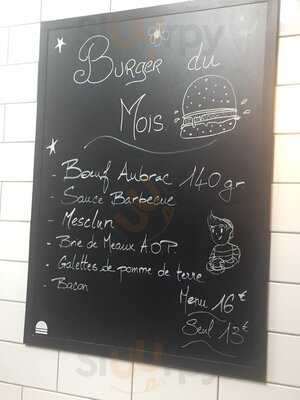 Burger du
Mois
- Bœuf Aubrac 140 gr
- Sauce Barbecue
- Mesclun
- Brie de Meaux A.O.P.
- Galettes de pomme de terre
- Bacon
Menu 16€
Seul 13€